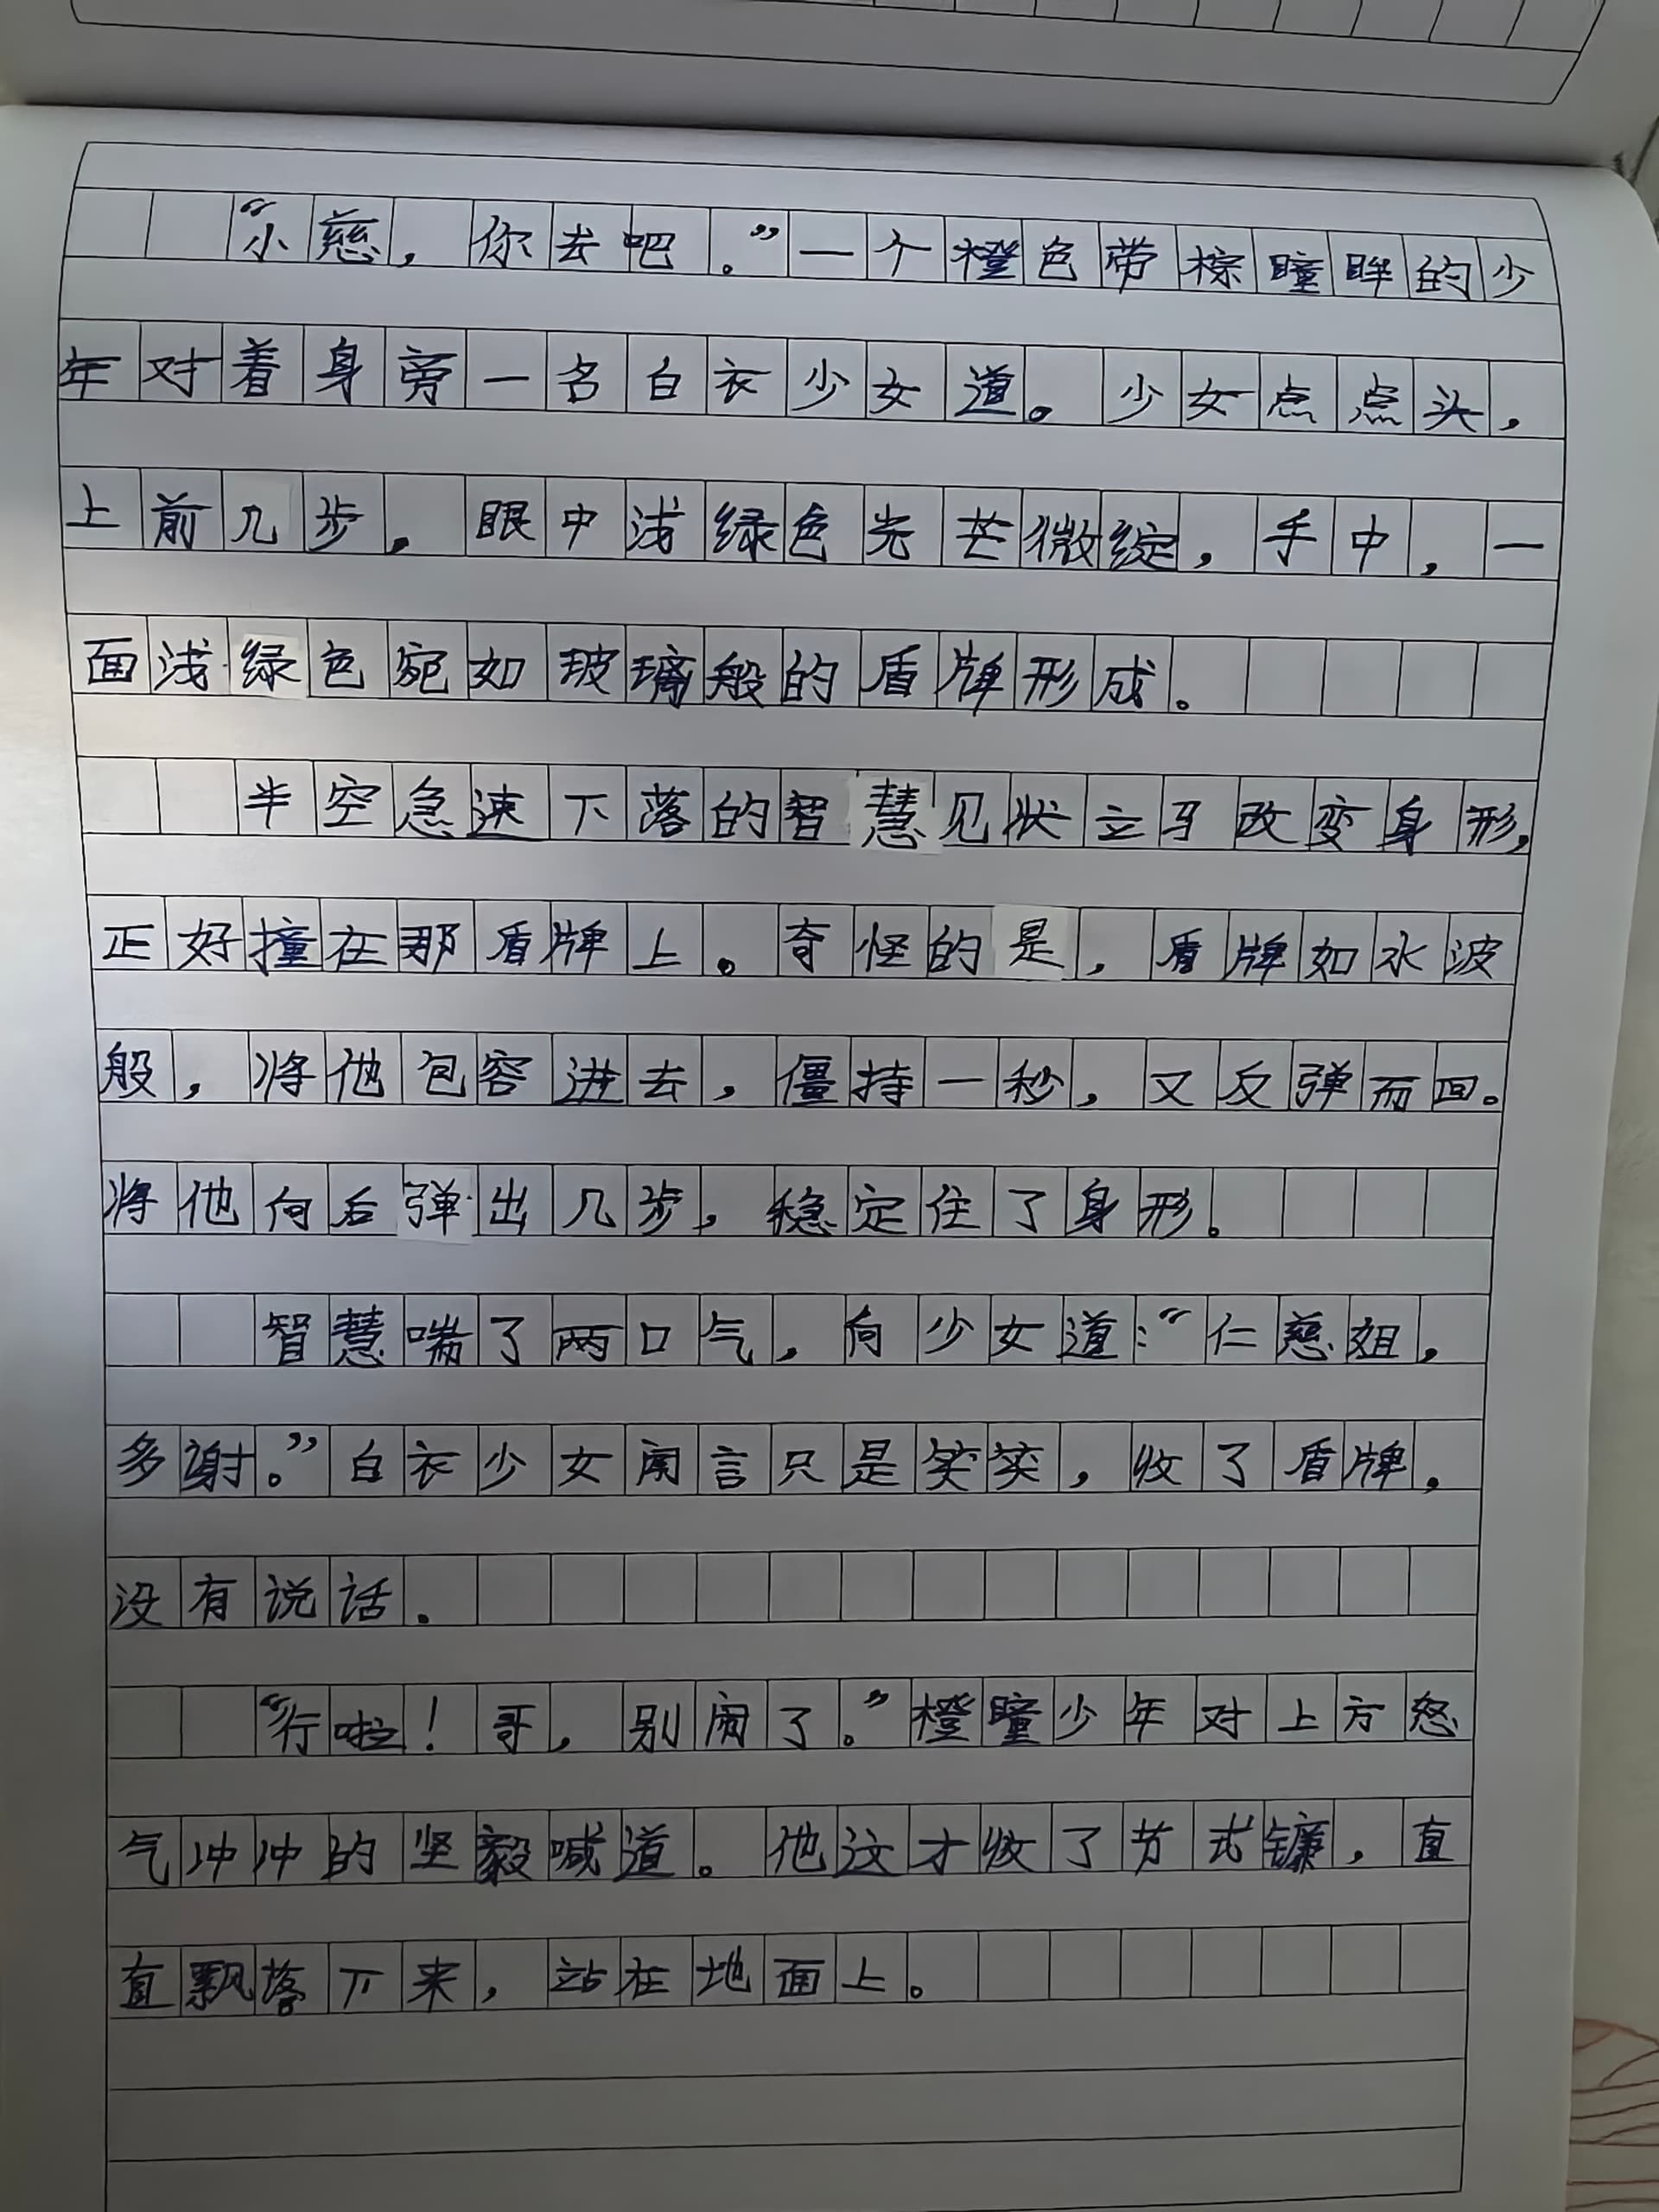 “小慈，你去吧。”一个橙色带棕瞳眸的少
年对着身旁一名白衣少女道。少女点点头，
上前几步。眼中浅绿色光芒微绽，手中，一
面浅绿色宛如玻璃般的盾牌形成。
半空急速下落的智慧见状立马改变身形，
正好撞在那盾牌上。奇怪的是，盾牌如水波
般，将他包容进去，僵持一秒，又反弹而回。
将他向后弹出几步，稳定住了身形。
智慧喘了两口气，向少女道：“仁慈姐，
多谢。”白衣少女闻言只是笑笑，收了盾牌。
没有说话。
“行啦！哥，别闹了。”橙瞳少年对上方怒
气冲冲的坚毅喊道。他这才收了节式镰，直
直飘落下来，站在地面上。